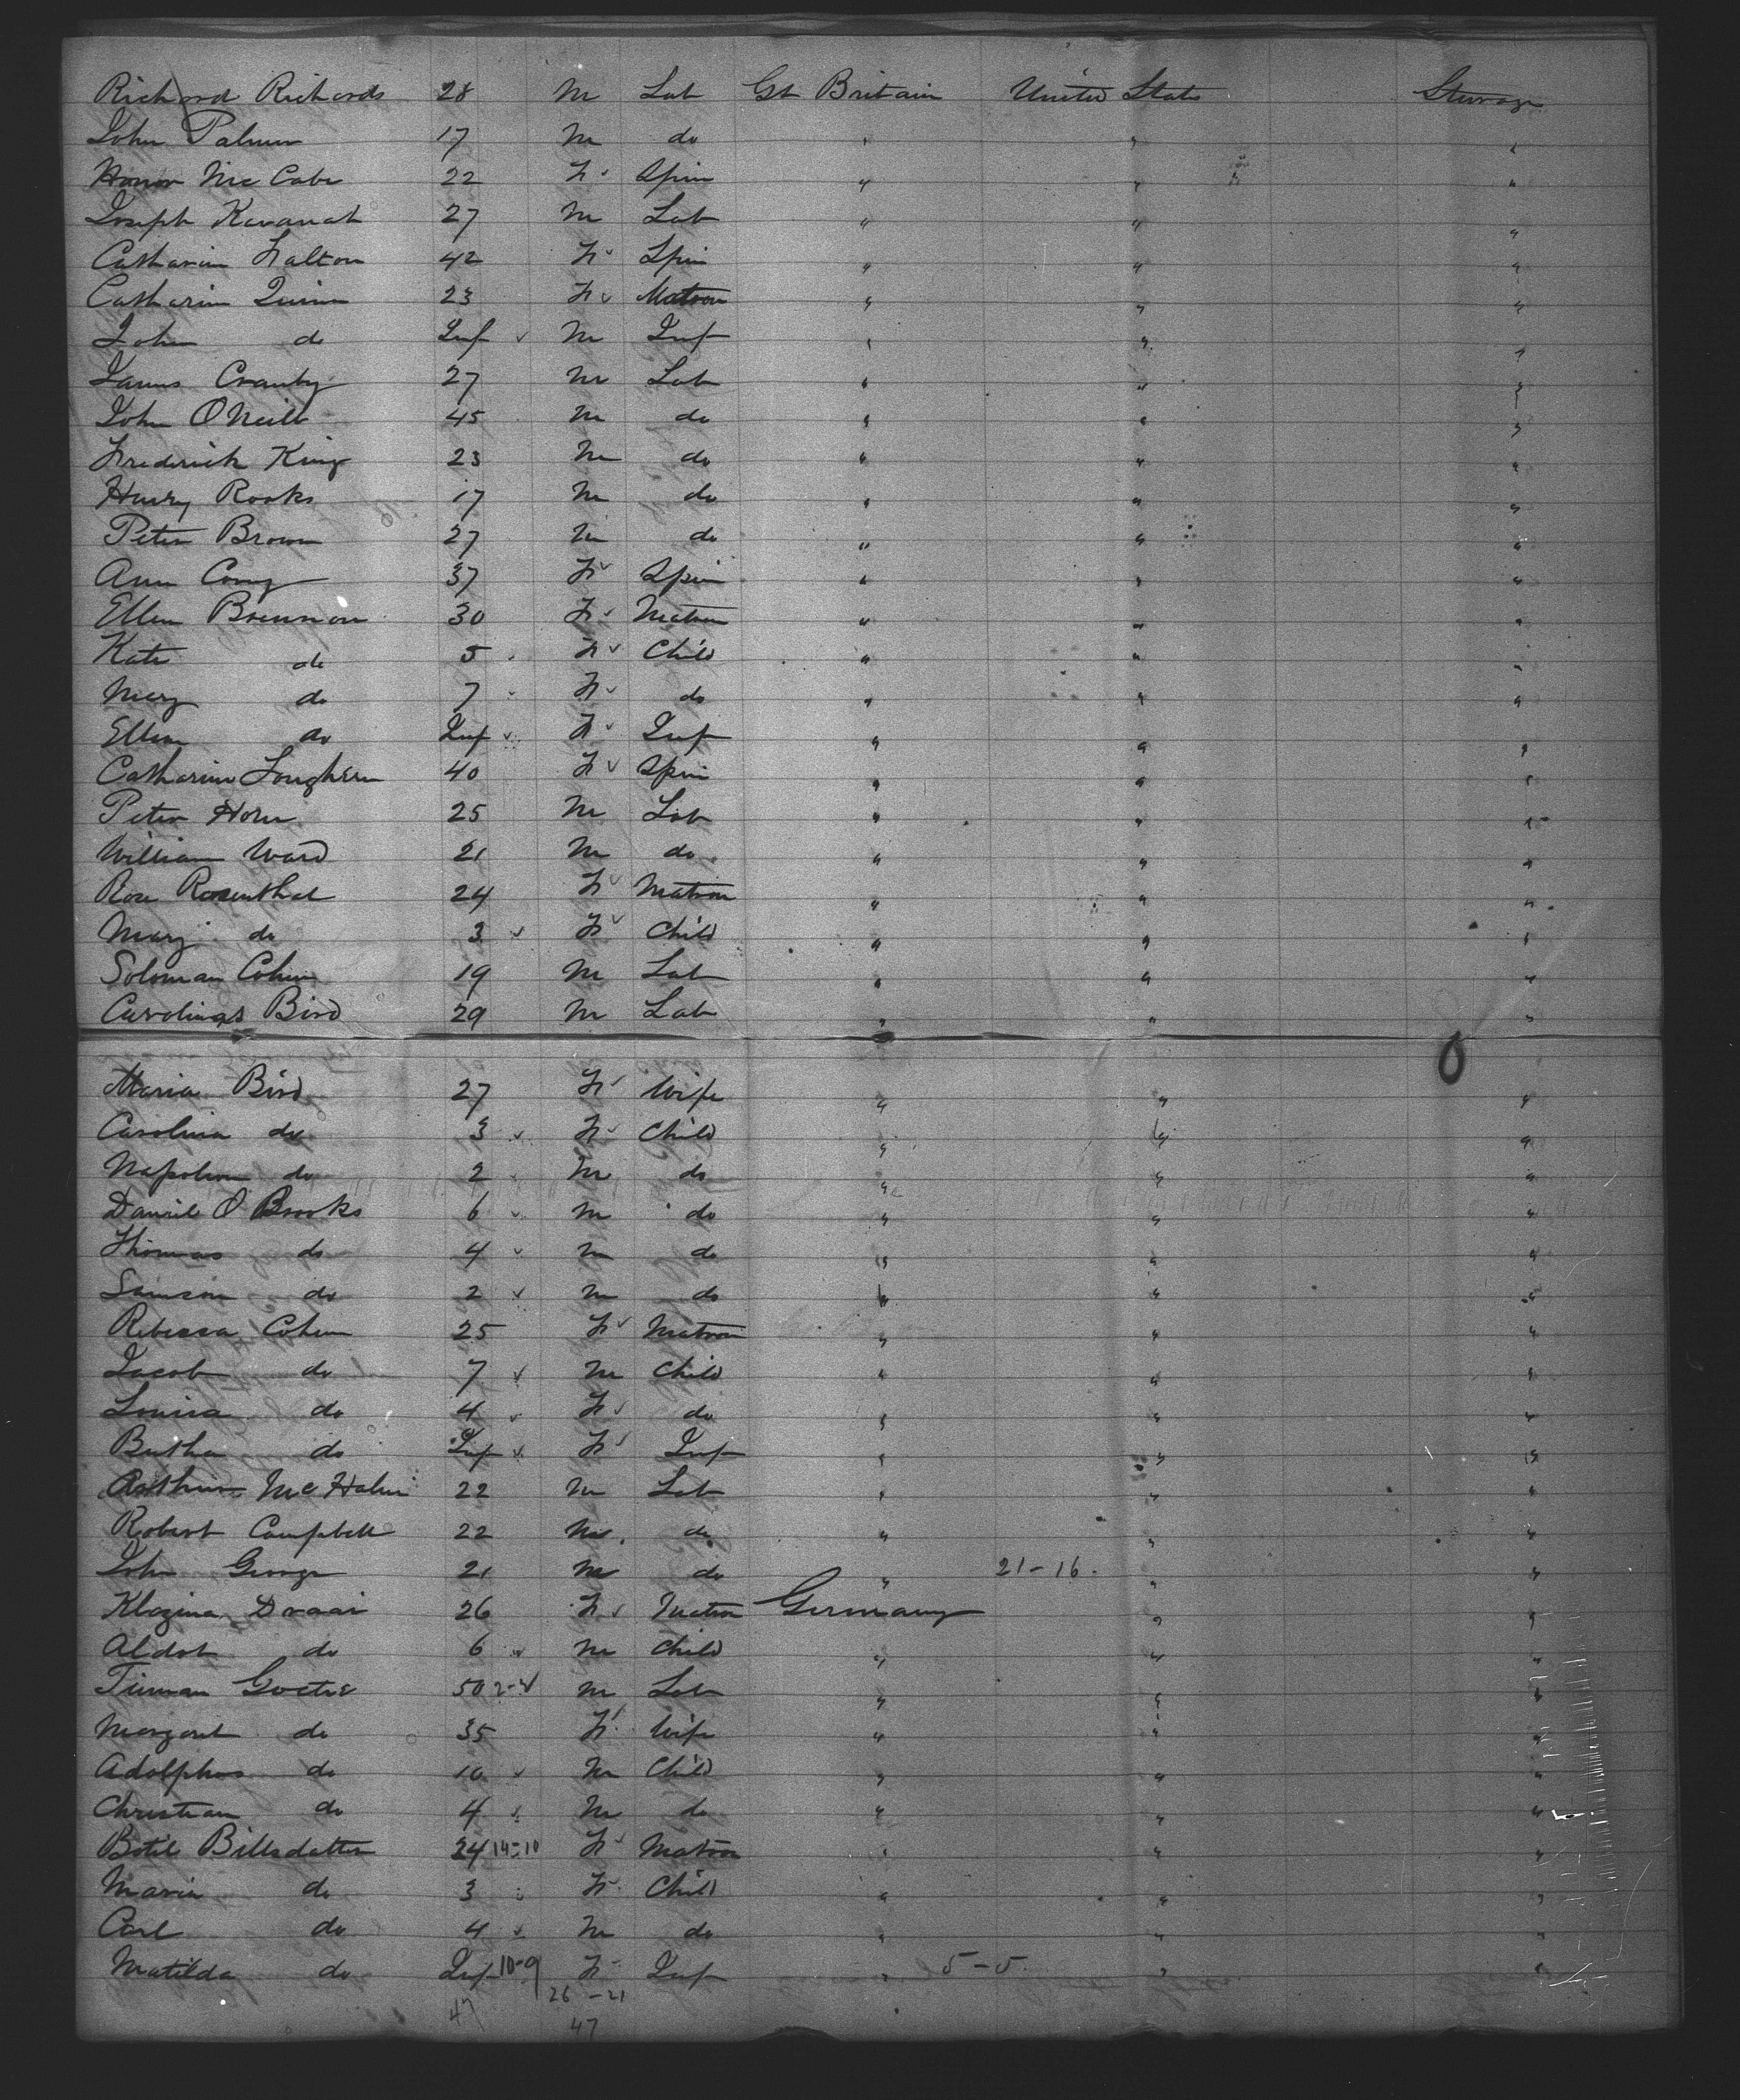 Richard Richards 28 M Lab Gt Britain United States Steerage
John Palmer 17 M do " " "
Honor McCabe 22 F Spin " " "
Joseph Kavanah 27 M Lab " " "
Catharin Falton 42 F Spin " " "
Catharin Quinn 23 F Matron " " "
John do Inf M Inf " " "
James Cranby 27 M Lab " " "
John O'Neill 45 M do " " "
Frederick King 23 M do " " "
Henry Rooks 17 M do " " "
Peter Brown 27 M do " " "
Ann Corry 37 F Spin " " "
Ellen Brennan 30 F Matron " " "
Kate do 5 F Child " " "
Mary do 7 F do " " "
Ellen do Inf F Inf " " "
Catharine Loughren 40 F Spin " " "
Peter Horn 25 M Lab " " "
William Ward 21 M do " " "
Rose Rosenthal 24 F Matron " " "
Mary do 3 F Child " " "
Soloman Cohen 19 M Lab " " "
Bird 29 M Lab " " "
Maria Bird 27 F Wife " " "
Carolina do 3 F Child " " "
Napoleon do 2 M do " " "
Daniel O Brooks 6 M do " " "
Thomas do 4 M do " " "
Samson do 2 M do " " "
Rebecca Cohen 25 F Matron " " "
Jacob do 7 M Child " " "
Louisa do 4 F do " " "
Bertha do Inf F Inf " " "
Arthur McHale 22 M Lab " " "
Robert Campbell 22 M do " " "
John George 21 M do " 21-16 " "
Klazina Draai 26 F Matron Germany " "
Aldot do 6 M Child " " "
Goetze 50 2-2 M Lab " " "
Margaret do 35 F Wife " " "
Adolphus do 10 M Child " " "
Christian do 4 M do " " "
Botil Billsdatter 24 14-10 F Matron " " "
Maria do 3 F Child " " "
Carl do 4 M do " " "
Matilda do Inf 10-9 F Inf " 5-5 " "
47 26-21
47